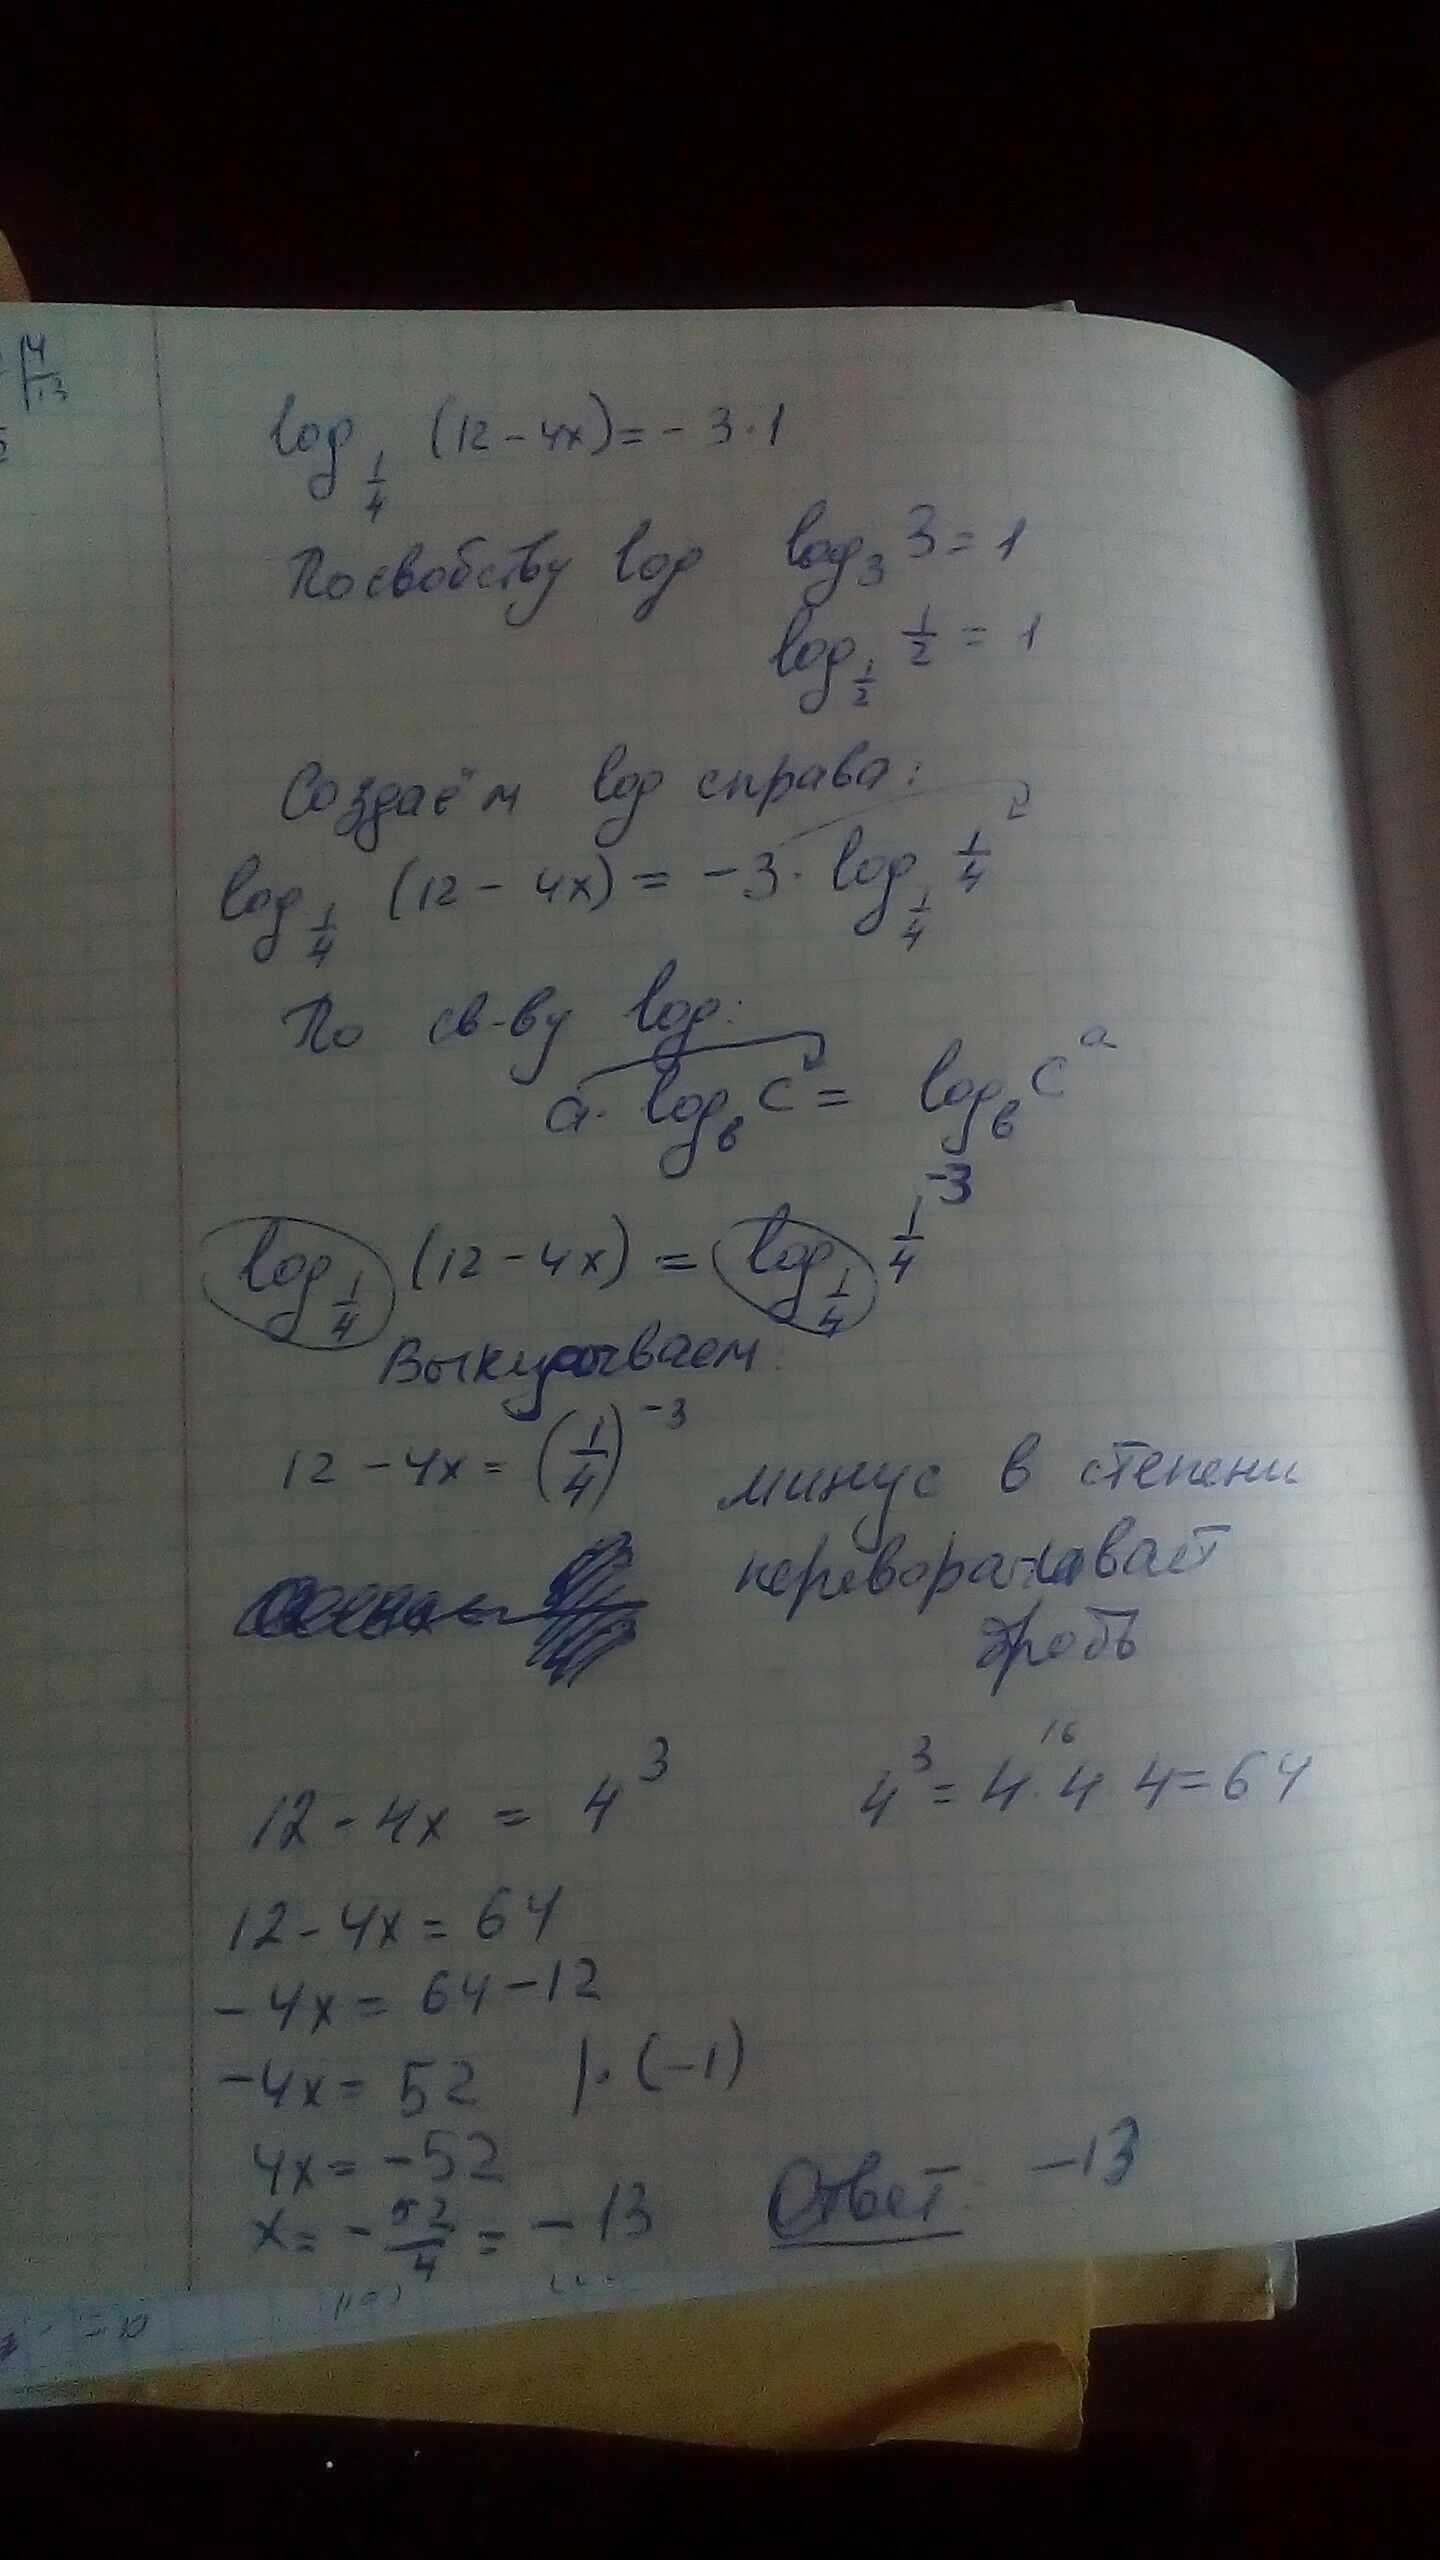 log_{1/4} (12 - 4x) = - 3 · 1
По свойству log log_3 3 = 1
log_{1/2} 1/2 = 1
Создаём log справа:
log_{1/4} (12 - 4x) = -3 · log_{1/4} 1/4
По св-ву log:
a · log_в c = log_в c^a
log_{1/4} (12 - 4x) = log_{1/4} 1/4^{-3}
12 - 4x = (1/4)^{-3} минус в степени
переворачивает
дробь
12 - 4x = 4^3 4^3 = 4 · 4 · 4 = 64
16
12 - 4x = 64
- 4x = 64 - 12
- 4x = 52 | · (-1)
4x = -52
x = - 52/4 = - 13 Ответ: -13